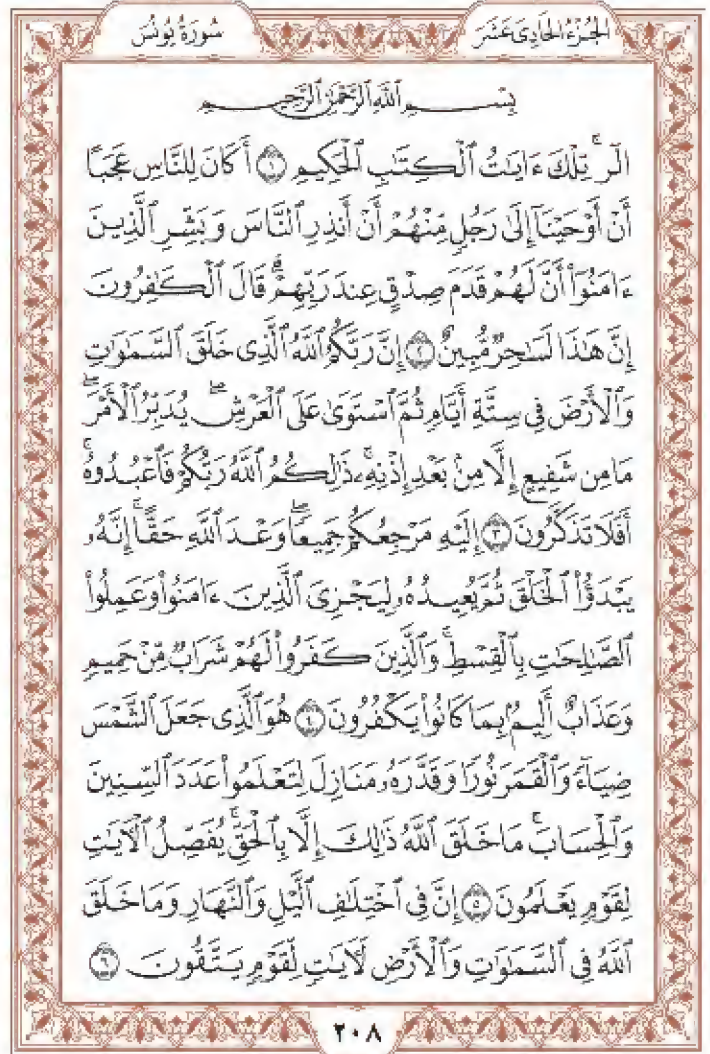 الجُزْءُ الحَادِى عَشَرَ
سُورَةُ يُونُسَ
بِسْمِ ٱللَّهِ ٱلرَّحْمَٰنِ ٱلرَّحِيمِ
الٓر ۚ تِلْكَ ءَايَٰتُ ٱلْكِتَٰبِ ٱلْحَكِيمِ ۝١ أَكَانَ لِلنَّاسِ عَجَبًا
أَنْ أَوْحَيْنَآ إِلَىٰ رَجُلٍ مِّنْهُمْ أَنْ أَنذِرِ ٱلنَّاسَ وَبَشِّرِ ٱلَّذِينَ
ءَامَنُوٓا۟ أَنَّ لَهُمْ قَدَمَ صِدْقٍ عِندَ رَبِّهِمْ ۗ قَالَ ٱلْكَٰفِرُونَ
إِنَّ هَٰذَا لَسَٰحِرٌ مُّبِينٌ ۝٢ إِنَّ رَبَّكُمُ ٱللَّهُ ٱلَّذِى خَلَقَ ٱلسَّمَٰوَٰتِ
وَٱلْأَرْضَ فِى سِتَّةِ أَيَّامٍ ثُمَّ ٱسْتَوَىٰ عَلَى ٱلْعَرْشِ ۖ يُدَبِّرُ ٱلْأَمْرَ ۖ
مَا مِن شَفِيعٍ إِلَّا مِنۢ بَعْدِ إِذْنِهِۦ ۚ ذَٰلِكُمُ ٱللَّهُ رَبُّكُمْ فَٱعْبُدُوهُ ۚ
أَفَلَا تَذَكَّرُونَ ۝٣ إِلَيْهِ مَرْجِعُكُمْ جَمِيعًا ۖ وَعْدَ ٱللَّهِ حَقًّا ۚ إِنَّهُۥ
يَبْدَؤُا۟ ٱلْخَلْقَ ثُمَّ يُعِيدُهُۥ لِيَجْزِىَ ٱلَّذِينَ ءَامَنُوا۟ وَعَمِلُوا۟
ٱلصَّٰلِحَٰتِ بِٱلْقِسْطِ ۚ وَٱلَّذِينَ كَفَرُوا۟ لَهُمْ شَرَابٌ مِّنْ حَمِيمٍ
وَعَذَابٌ أَلِيمٌۢ بِمَا كَانُوا۟ يَكْفُرُونَ ۝٤ هُوَ ٱلَّذِى جَعَلَ ٱلشَّمْسَ
ضِيَآءً وَٱلْقَمَرَ نُورًا وَقَدَّرَهُۥ مَنَازِلَ لِتَعْلَمُوا۟ عَدَدَ ٱلسِّنِينَ
وَٱلْحِسَابَ ۚ مَا خَلَقَ ٱللَّهُ ذَٰلِكَ إِلَّا بِٱلْحَقِّ ۚ يُفَصِّلُ ٱلْءَايَٰتِ
لِقَوْمٍ يَعْلَمُونَ ۝٥ إِنَّ فِى ٱخْتِلَٰفِ ٱلَّيْلِ وَٱلنَّهَارِ وَمَا خَلَقَ
ٱللَّهُ فِى ٱلسَّمَٰوَٰتِ وَٱلْأَرْضِ لَءَايَٰتٍ لِّقَوْمٍ يَتَّقُونَ ۝٦
٢٠٨